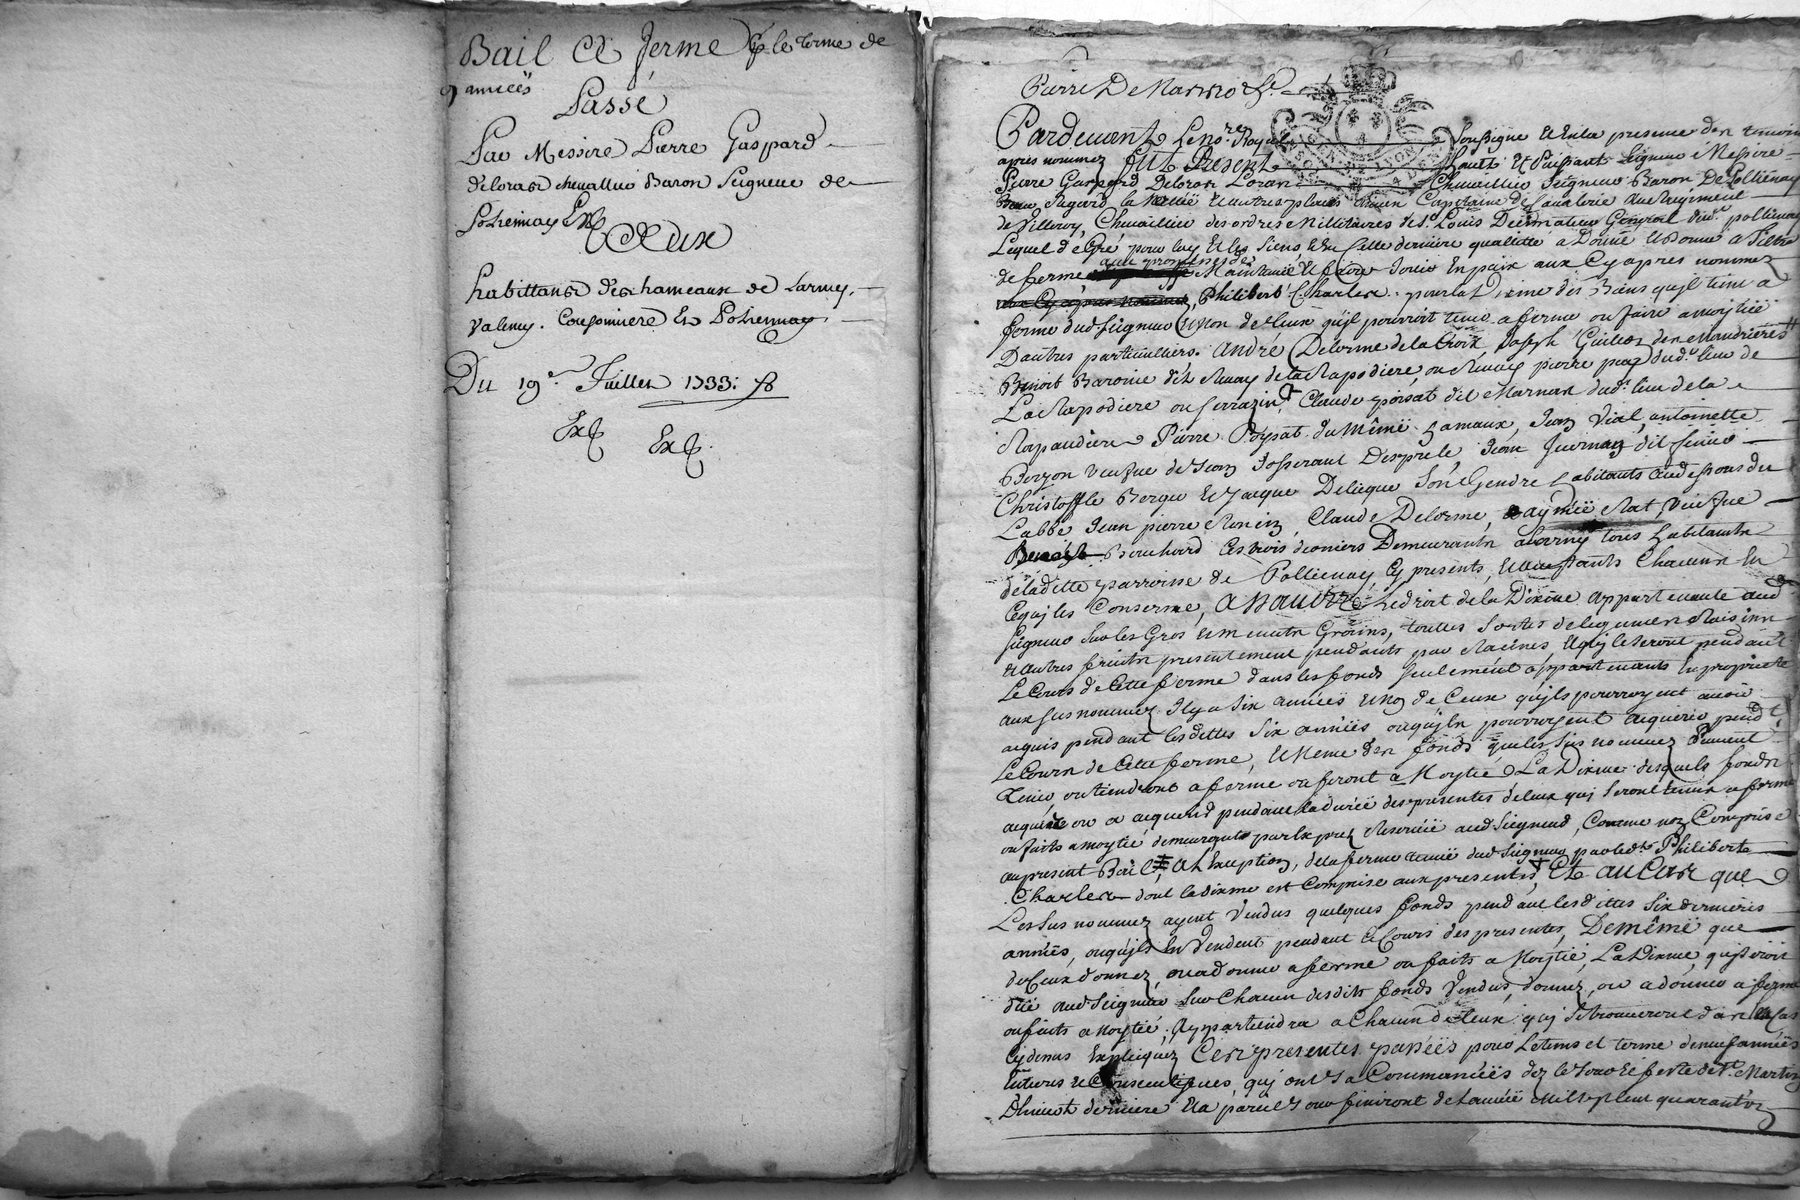 Bail a ferme p le terme de
9 années
Passé
Par Messire Pierre Gaspard
deloras chevallier Baron Seigneur de
Pollienay Ex
A Eux
habittans des hameaux de Larny,
Valency. Et Pollienay
Du 19e Juillet 1733:
Ex
Ex
Pierre De Mar
Pardevant Le nore Royal Soussigné Et En la presence des temoins
apres nommez fut Present haut Et Puissant Seigneur Messire
Pierre Gaspard Deloras Chevallier Seigneur Baron De Pollienay
Regard la et autres places Ancien Capitaine de Cavalerie au Regiment
de Villeroy, Chevallier des ordres Millitaires de St Louis Decimateur General dud. pollienay
Lequel de Gré, pour luy Et les Siens, Et En Cette derniere quallitté a Donné Et Donne a Tiltre
de ferme avec promesse de Maintenir Et faire Jouir En paix aux Cy apres nommez
Philibert Charles pour la Disme des Biens qu'jl tient a
ferme dud Seigneur Et non de Ceux qu'jl pourroit tenir a ferme ou faire a moitié
D'autres particulliers. André Delorme de la Croix Joseph des Mandrieres
Benoit Baronie dit de la Rapodiere, ou pierre dud. lieu de
La Rapodiere ou Claude poisat dit Marnan dud. lieu de la
Rapaudiere Pierre Poysat du Même hamaux, Jean Vial, antoinette
Veufve de Jean Josserant Desprele, Jean Journay dit
Christoffle Berger Et Jacque Son Gendre habitants audessous de
Labbé Jean pierre Claude Delorme, aymée Rat Veufve
Benoist Bouchard Ces trois derniers Demeurants a Larny tous habitants
de laditte parroisse de Pollienay, Cy presents, Et acceptants Chacun En
Ce qui les Conserne, A Sçavoir Le droit de la Disme appartenante aud
Seigneur Sur les Gros Et menuts Grains, toutes Sortes de legumes Raisins
et autres fruits presentement pendants par Racines Et qui le Seront pendant
Le Cours de Cette ferme dans les fonds Seulement appartenants En proprieté
aux Susnommez Il y a Six années Et non de Ceux qu'jls pourroyent avoir
acquis pendant lesdittes Six années ou qu'jls pourroyent acquerir pendt
Le Cours de Cette ferme, Et Meme des fonds que les Sus nommez Peuvent
Tenir, ou tiendront a ferme ou feront a Moytié La Disme desquels fonds
acquis ou a acquerir pendant la durée des presentes, de Ceux qui Seront tenus a ferme
ou faits a moytié demeurant par Exprez Reservée aud Seigneur, Comme non Comprise
au present Bail, A L'Exception, de la ferme tenüe dud Seigneur par ledt Philibert
Charles dont la disme est Comprise aux presentes, Et au Cas que
Les Sus nommez ayent Vendus quelques fonds pendant lesdites Six dernieres
années, ou qu'jls En Vendent pendant le Cours des presentes, De même que
de Ceux donnez, ou a donner a ferme ou faits a Moytié, La Disme, qui Seroit
düe aud Seigneur Sur Chacun desdits fonds Vendus, donnez, ou a donner a ferme
ou faits a moytié; Appartiendra a Chacun de Ceux qui Se trouveront dans le Cas
Cy dessus Expliquez Ces presentes passées pour Le tems et terme de neuf années
Entieres et Consecutives, qui ont a Commancées dez le Jour Et feste de St Martin
D'hiver derniere Et a pareil Jour finiront de L'année Mil Sept cent quarante